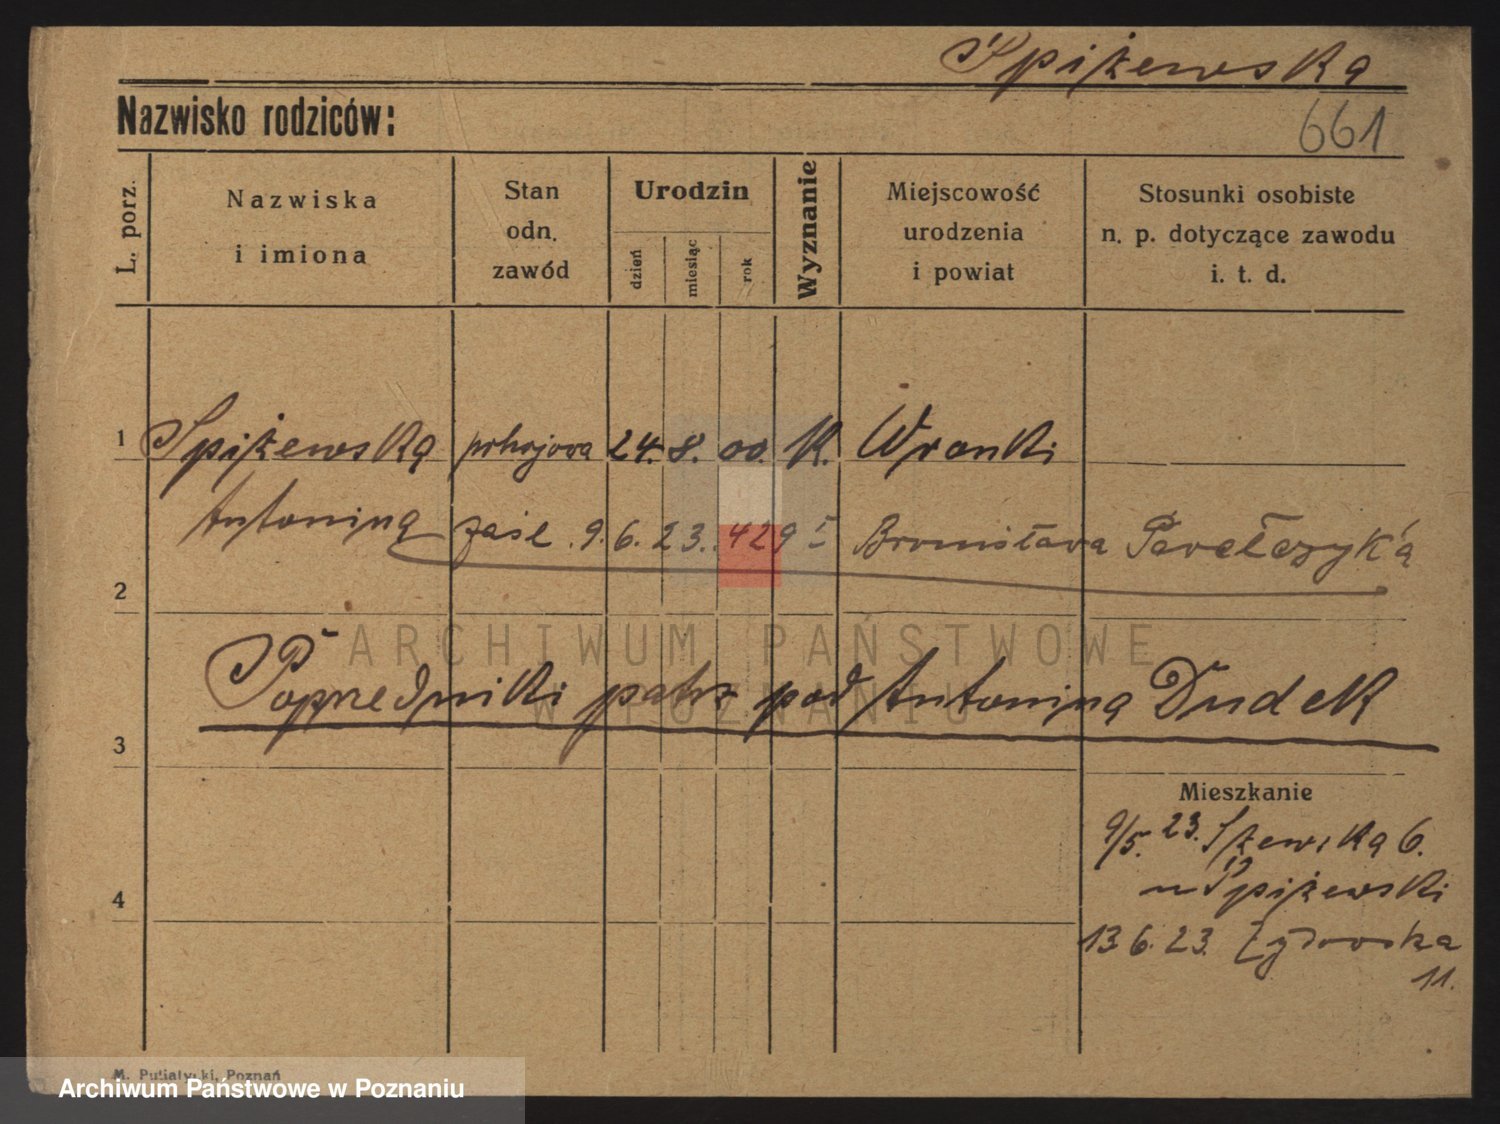 Spiżewska
Nazwisko rodziców:
661
L. porz.
Nazwiska
i imiona
Stan
odn.
zawód
Urodzin
dzień
miesiąc
rok
Wyznanie
Miejscowość
urodzenia
i powiat
Stosunki osobiste
n. p. dotyczące zawodu
i. t. d.
1 Spiżewska pokojowa 24. 8. 00. K. Wronki
Antonina zaśl. 9. 6. 23. 429 Bronisława Pawełczyka
2
Poprzedniki patrz pod Antonina Dudek
3
Mieszkanie
9/5. 23. Szewska 6.
Spiżewski
4
13 6. 23. Żydowska
11.
M. Putiatycki, Poznań
ARCHIWUM PAŃSTWOWE
W POZNANIU
Archiwum Państwowe w Poznaniu